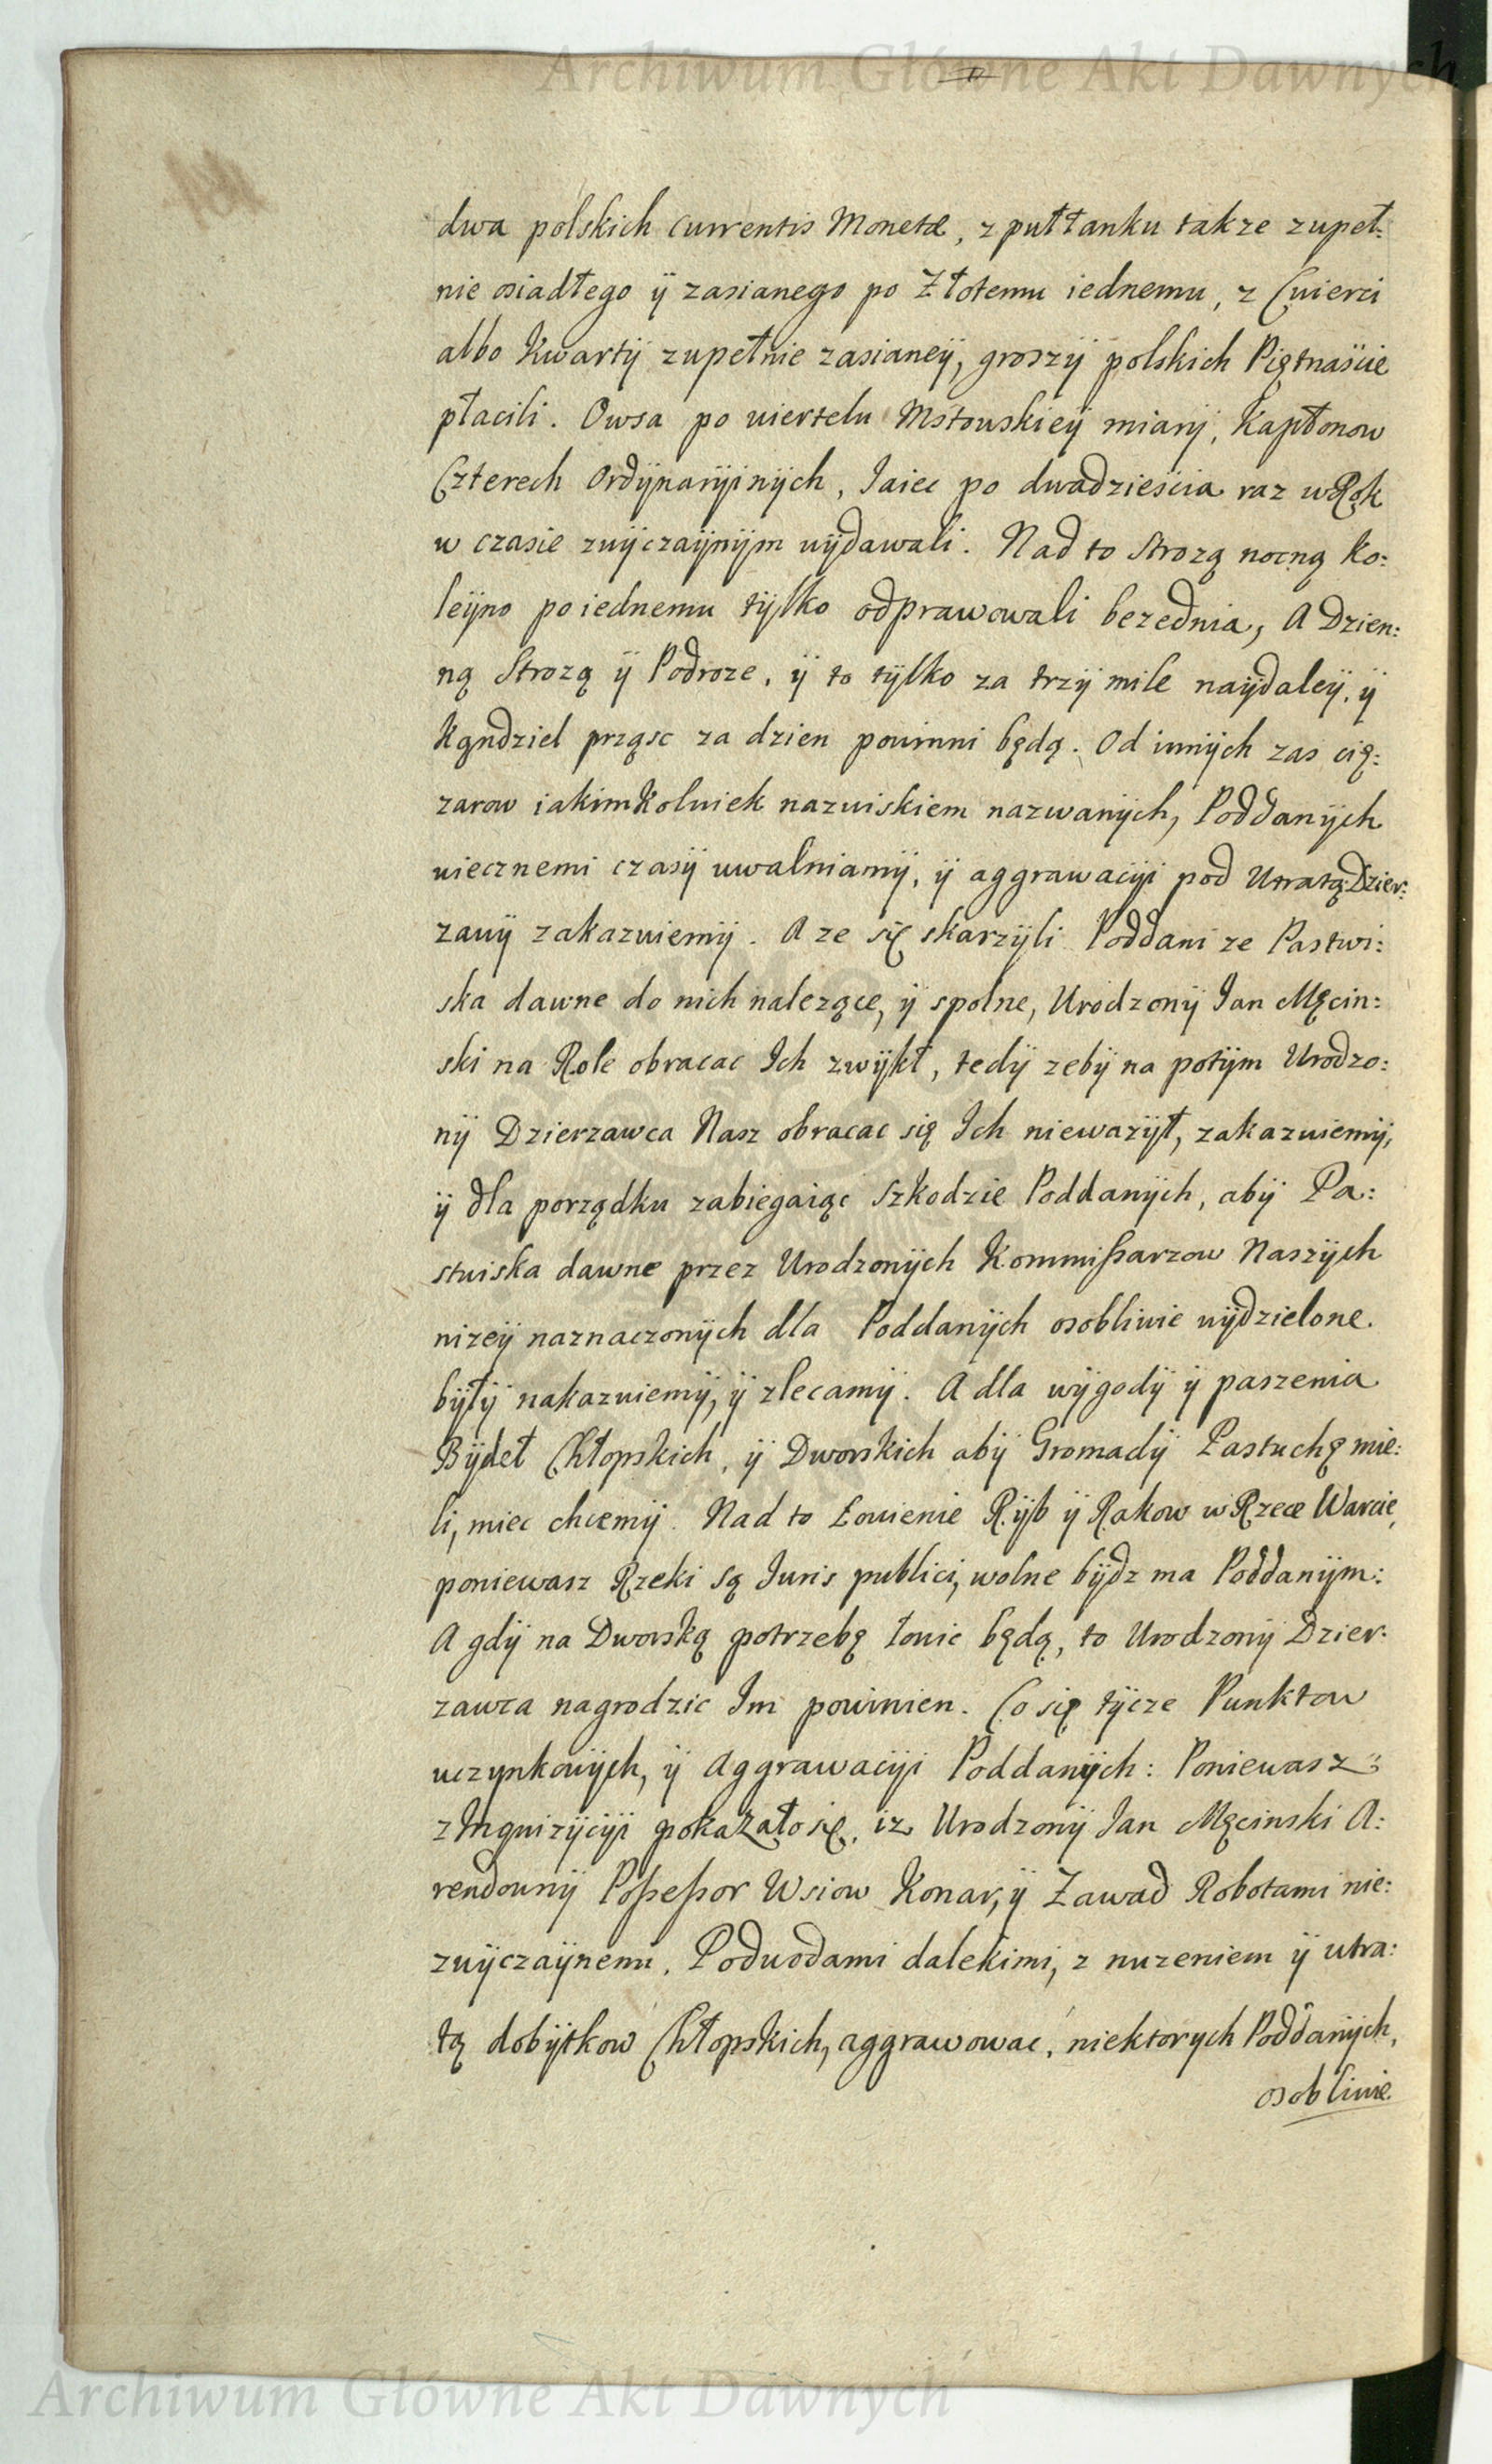 Archiwum Główne Akt Dawnych
dwa polskich currentis Monetæ, z pułłanku takze zupeł:
nie osiadłego ÿ zasianego po Złotemu iednemu, z Cwierci
albo Kwartÿ zupełnie zasianeÿ, groszÿ polskich Piętnaście
płacili. Owsa po wiertelu Mstowskieÿ miarÿ, Kapłonow
Czterech Ordÿnarÿinÿch, Iaiec po dwadziescia raz w Rok
w czasie zwÿczaÿnÿm wÿdawali. Nad to Strozą nocną ko:
leÿno po iednemu tÿlko odprawowali bezednia, A Dzien:
ną Strozą ÿ Podroze, ÿ to tÿlko za trzÿ mile naÿdaleÿ, ÿ
Kądziel prząsc za dzien powinni będą. Od innÿch zas cię:
zarow iakimkolwiek nazwiskiem nazwanÿch, Poddanÿch
wiecznemi czasÿ uwalniamÿ, ÿ aggrawacÿi pod Utratą Dzier:
zawÿ zakazuiemÿ. A ze się skarzÿli Poddani ze Pastwi:
ska dawne do nich nalezące, ÿ spolne, Urodzonÿ Jan Męcin:
ski na Role obracac Ich zwÿkł, tedÿ zebÿ na potÿm Urodzo:
nÿ Dzierzawca Nasz obracac się Ich niewazÿł, zakazuiemÿ,
ÿ dla porządku zabiegaiąc szkodzie Poddanÿch, abÿ Pa:
stwiska dawne przez Urodzonÿch Kommißarzow Naszÿch
nizeÿ naznaczonÿch dla Poddanÿch osobliwie wÿdzielone
bÿłÿ nakazuiemÿ, ÿ zlecamÿ. A dla wÿgodÿ ÿ paszenia
Bÿdeł Chłopskich, ÿ Dworskich abÿ Gromadÿ Pastuchę mie:
li, miec chcemÿ. Nad to Łowienie Rÿb ÿ Rakow w Rzece Warcie,
poniewasz Rzeki są Iuris publici, wolne bÿdz ma Poddanÿm:
A gdÿ na Dworską potrzebę łowic będą, to Urodzonÿ Dzier:
zawca nagrodzic Im powinien. Co się tÿcze Punktow
uczynkowÿch, ÿ Aggrawacÿi Poddanÿch: Poniewasz
z Inquizÿcÿi pokazało się, iz Urodzonÿ Jan Męcinski A:
rendownÿ Poßeßor Wsiow Konar, ÿ Zawad Robotami nie:
zwÿczaÿnemi, Podwodami dalekimi, z nuzeniem ÿ utra:
tą dobÿtkow Chłopskich, aggrawowac, niektorych Poddanÿch,
osobliwie
Archiwum Główne Akt Dawnych